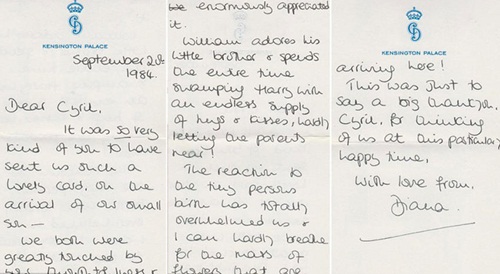 KENSINGTON PALACE
September 20th
1984.
Dear Cyril,
It was so very
kind of you to have
sent us such a
lovely card, on the
arrival of our small
son —
We both were
greatly touched by
we enormously appreciated
it.
William adores his
little brother & spends
the entire time
swamping Harry with
an endless supply
of hugs & kisses, hardly
letting the parents
near!
The reaction to
one tiny persons
birth has totally
overwhelmed us &
I can hardly breathe
for the mass of
flowers that are
KENSINGTON PALACE
arriving here!
This was just to
say a big thankyou,
Cyril, for thinking
of us at this particular
happy time,
with love from,
Diana.